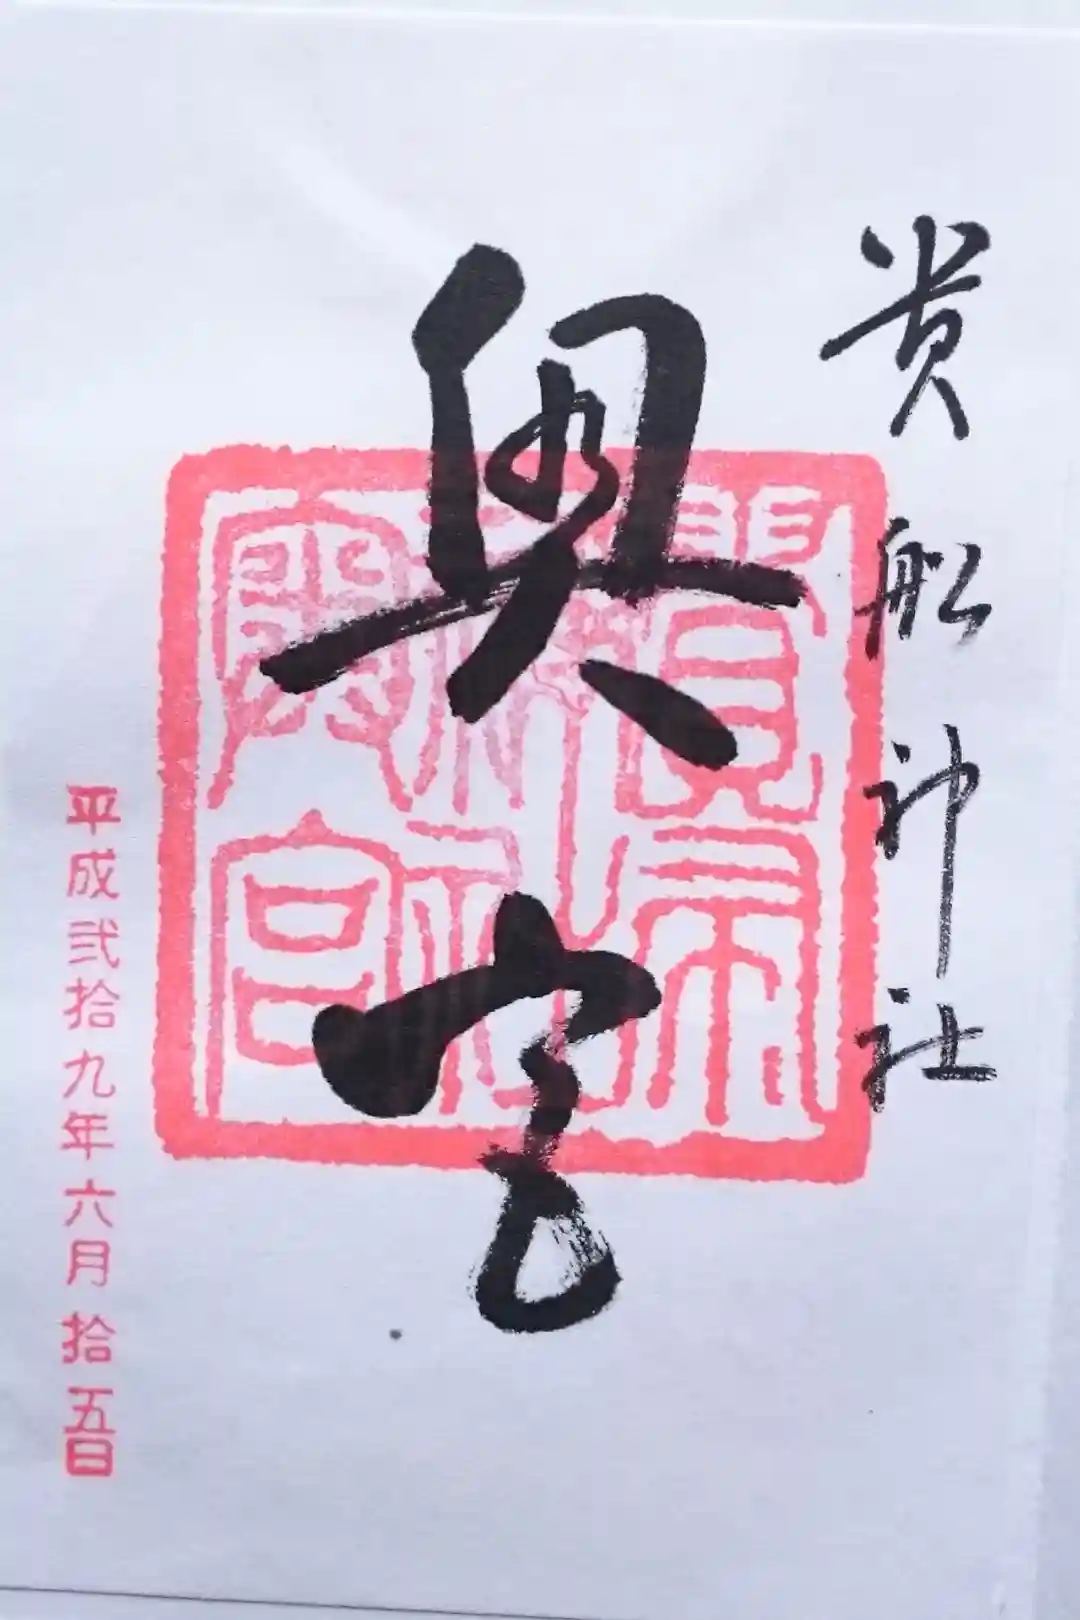 貴船神社
奥宮
平成弐拾九年六月拾五日